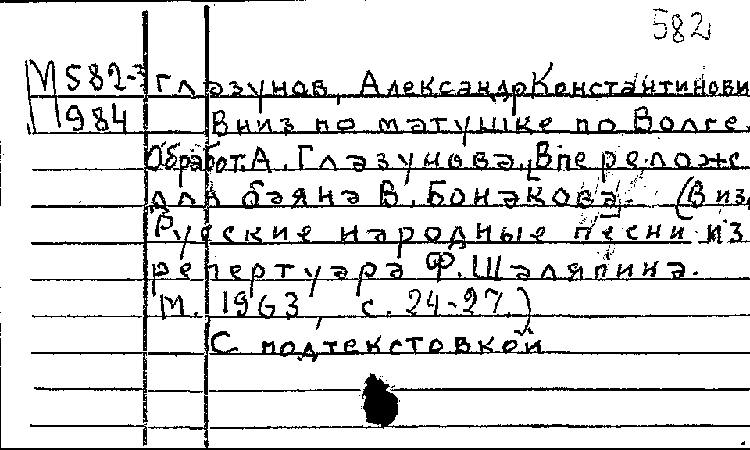 582
М582-3 Глазунов, Александр Константинови
1984 Вниз по матушке по Волге.
Обработ. А. Глазунова. Впереложе
для баяна В. Бонакова. (В из.
Русские народные песни из
репертуара Ф. Шаляпина.
М. 1963, с. 24-27.)
С подтекстовкой